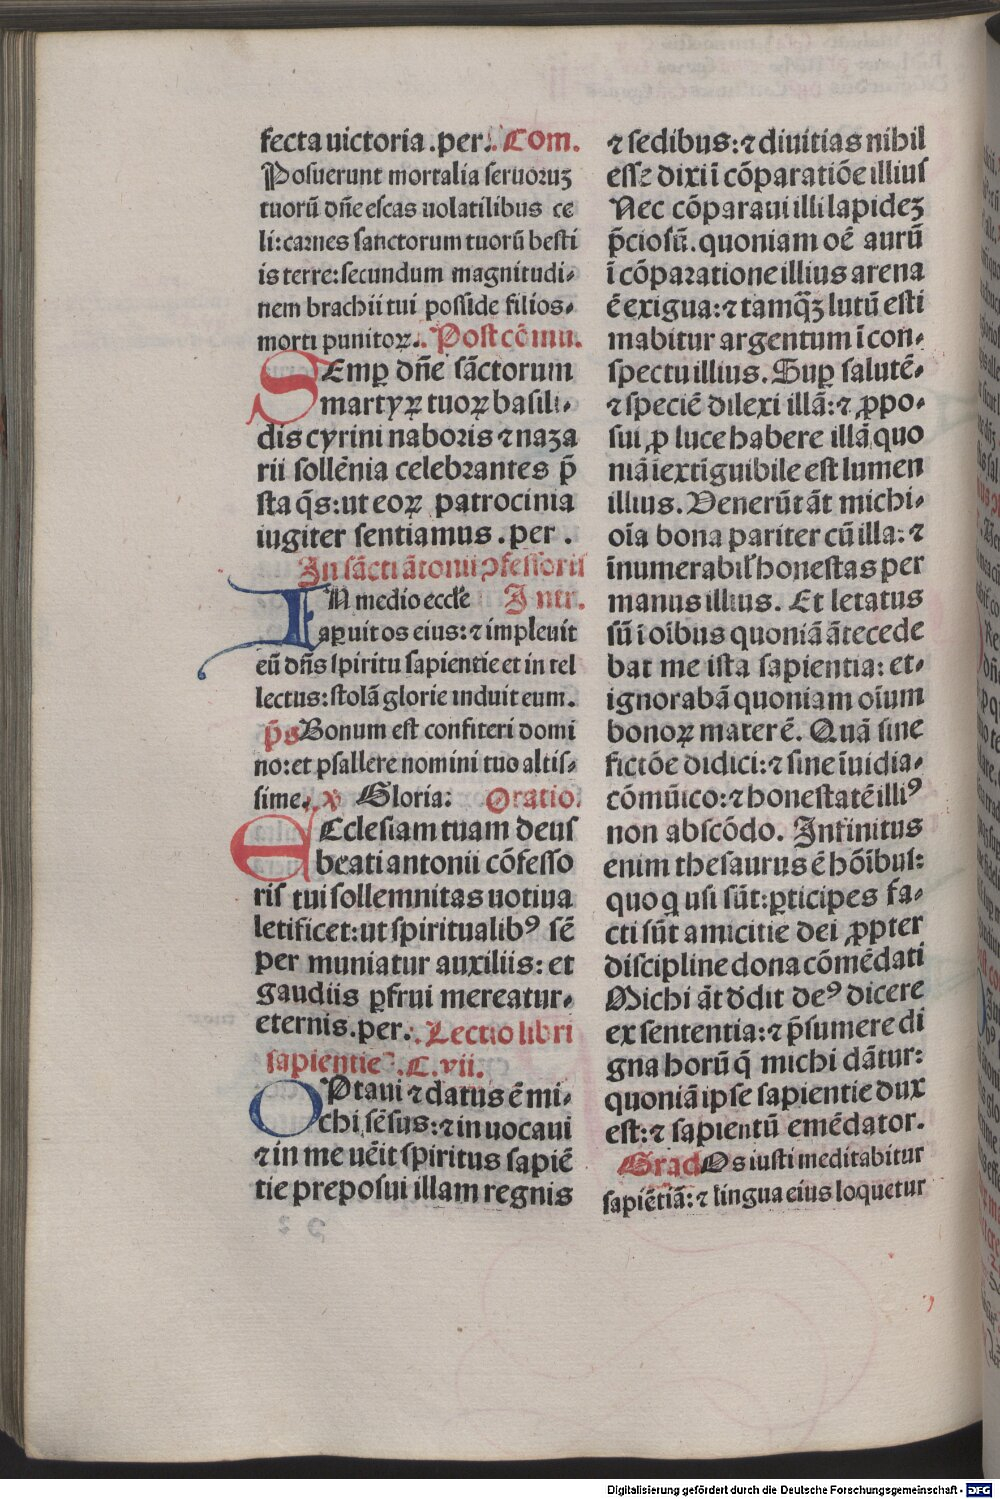 fecta uictoria .per⁝. Com.
Posuerunt mortalia seruoꝝuʒ
tuorū dn̄e escas uolatilibus ce
li:carnes sanctorum tuorū besti
is terre:secundum magnitudi⸗
nem brachii tui posside filios⸗
morti punitoꝝ.. Post cōmu.
SEmꝑ dn̄e sāctorum
martyꝝ tuoꝝ basili⸗
dis cyrini naboris ⁊ naza
rii sollēnia celebrantes p̄
sta q̄s:ut eoꝝ patrocinia
iugiter sentiamus .per .
In sācti ātonii ꝯfessoris
IN medio eccl̄e Intr.
aꝑuit os eius:⁊ impleuit
eū dn̄s spiritu sapientie et in tel
lectus:stolā glorie induit eum.
p̄s Bonum est confiteri domi
no:et psallere nomini tuo altis⸗
sime. ꝟ Gloria: Oratio.
ECclesiam tuam deus
beati antonii cōfesso
ris tui sollemnitas uotiua
letificet:ut spiritualibꝰ sē
per muniatur auxiliis:et
gaudiis ꝑfrui mereatur⸗
eternis.per.: Lectio libri
sapientie .C.vii.
OPtaui ⁊ datus ē mi⸗
chi sēsus:⁊ in uocaui
⁊ in me uēit spiritus sapiē
tie preposui illam regnis
⁊ sedibus:⁊ diuitias nibil
esse dixi ī cōparatiōe illius
Nec cōparaui illi lapideʒ
p̄ciosū.quoniam oē aurū
ī cōparatione illius arena
ē exigua:⁊ tamq̄ʒ lutū esti
mabitur argentum ī con⸗
spectu illius. Suꝑ salutē⸗
⁊ speciē dilexi illā:⁊ ꝓpo⸗
sui ꝓ luce habere illā quo
niā īextīguibile est lumen
illius. Uenerūt āt michi⸗
oīa bona pariter cū illa:⁊
īnumerabil̄ honestas per
manus illius. Et letatus
sū ī oībus quoniā ātecede
bat me ista sapientia: et⸗
ignorabā quoniam oīum
bonoꝝ mater ē. Quā sine
fictōe didici:⁊ sine īuidia⸗
cōmūico:⁊ honestatē illiꝰ
non abscōdo. Infinitus
enim thesaurus ē hōībus:
quo q usi sūt:ꝑticipes fa⸗
cti sūt amicitie dei ꝓpter
discipline dona cōmēdati
Michi āt ddit deꝰ dicere
ex sententia:⁊ p̄sumere di
gna horū q̄ michi dātur:
quoniā ipse sapientie dux
est:⁊ sapientū emēdator.
Grad Os iusti meditabitur
sapiētiā:⁊ lingua eius loquetur
Digitalisierung gefördert durch die Deutsche Forschungsgemeinschaft - DFG